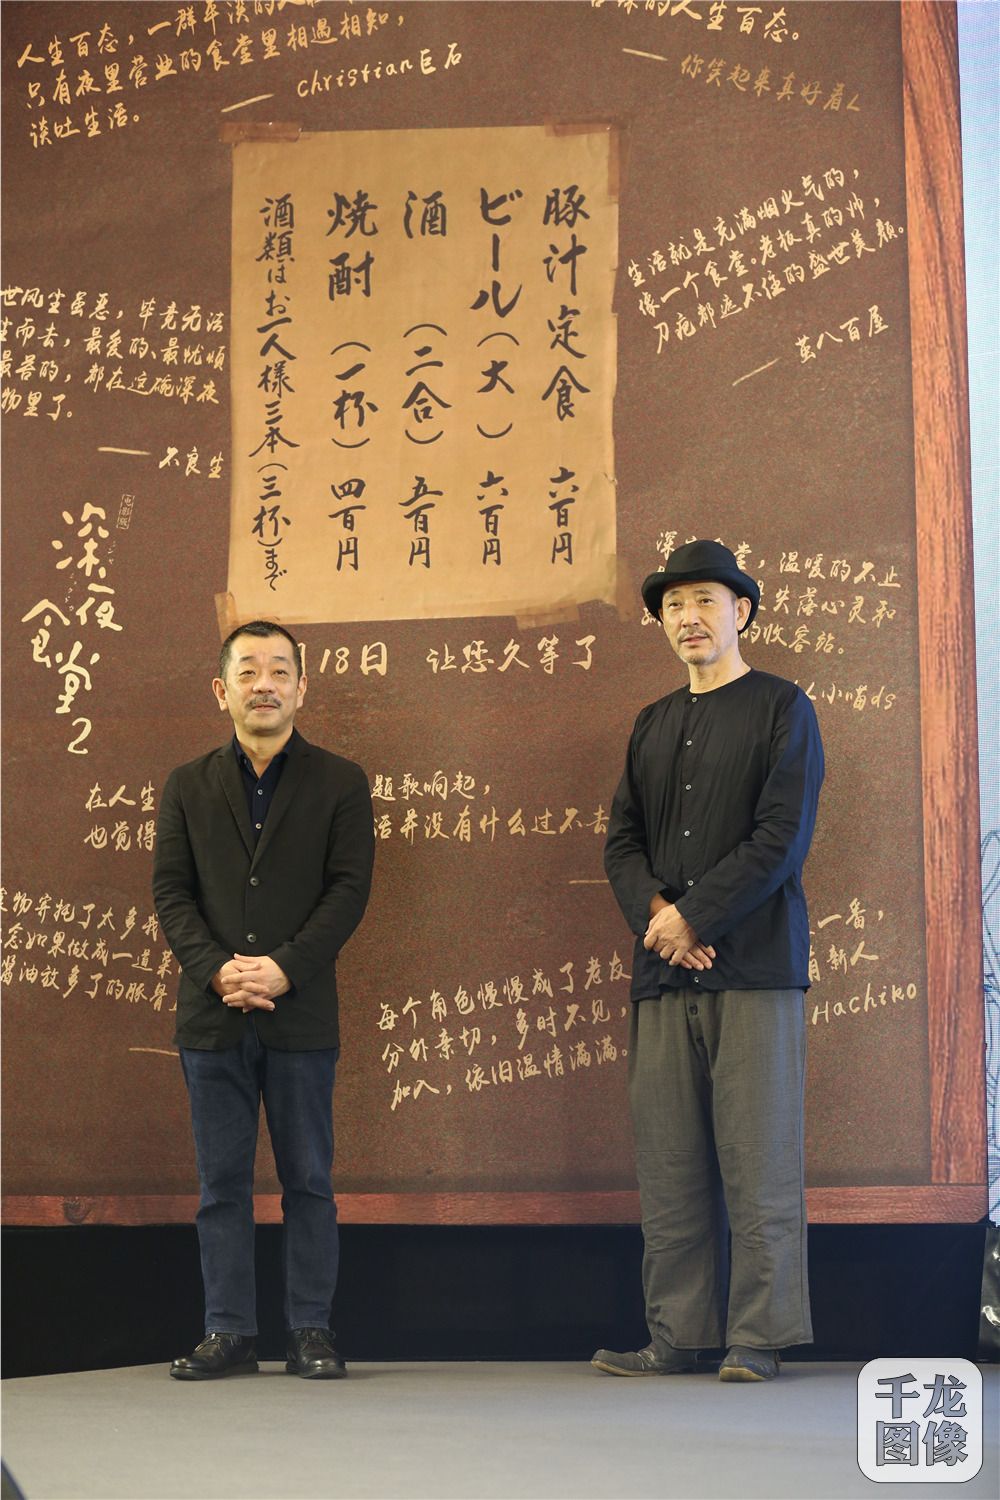 人生百态，一群平淡的人
只有夜里营业的食堂里相遇相知，
谈吐生活。
christian巨石
的人生百态。
你笑起来真好看人
豚汁定食 六百円
ビール(大) 六百円
酒 (二合) 五百円
焼酎 (一杯) 四百円
酒類はお一人様三本(三杯)まで
生活就是充满烟火气的，
像一个食堂。老板真的帅，
刀疤都遮不住的盛世美颜。
茧八百屋
世风生虽恶，毕竟无法
生而去，最爱的、最忧烦
最苦的，都在这碗深夜
物里了。
不良生
电影版
深夜
食堂2
堂，温暖的不止
失落心灵和
的收容站。
人小喵ds
月18日 让您久等了
在人生
题歌响起，
也觉得
活并没有什么过不去
物寄托了太多我
念如果做成一道菜
酱油放多了的豚骨
每个角色慢慢成了老友
分外亲切，多时不见，
加入，依旧温情满满。
一番，
有新人
Hachiko
千龙
图像